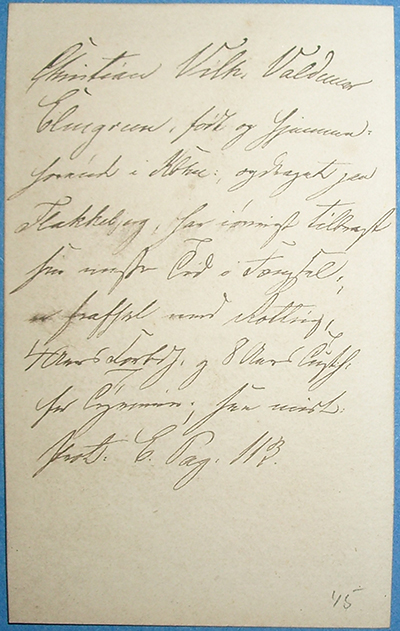 Christian Vilh. Valdemar
Elmgreen, født og hjemme-
hørende i Kbhvn:, opdraget paa
Flakkebjerg, har iøvrigt tilbragt
sin meste Tid i Fængsel,
straffet med Rotting,
4 Aars Forbdr. og 8 Aars Tugth.
for Tyverier; see
Prot. C. Pag. 113.
45